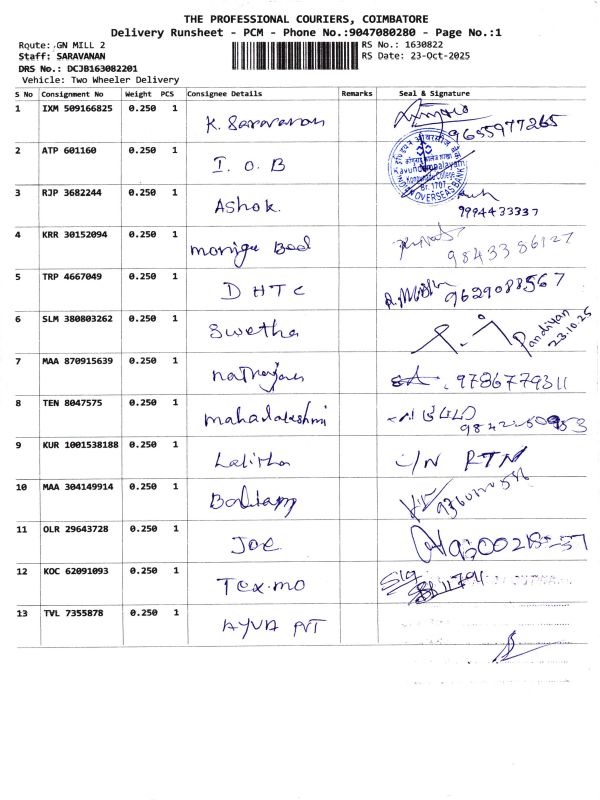 THE PROFESSIONAL COURIERS, COIMBATORE
Delivery Runsheet - PCM - Phone No.:9047080280 - Page No.:1
Route: GN MILL 2
RS No.: 1630822
Staff: SARAVANAN
RS Date: 23-Oct-2025
DRS No.: DCJB163082201
Vehicle: Two Wheeler Delivery
S No Consignment No Weight PCS Consignee Details Remarks Seal & Signature
1 IXM 509166825 0.250 1 K. Saravanan 9655977265
2 ATP 601160 0.250 1 I.O.B
Kavundampalayam
Br. 1707
INDIAN OVERSEAS BANK
3 RJP 3682244 0.250 1 Ashok. 9994433337
4 KRR 30152094 0.250 1 9843386127
5 TRP 4667049 0.250 1 DHTC 9629088567
6 SLM 380803262 0.250 1 Swetha Pandiyan 23.10.25
7 MAA 870915639 0.250 1 9786779311
8 TEN 8047575 0.250 1 mahalakshmi
9 KUR 1001538188 0.250 1 Lalitha C/N RTN
10 MAA 304149914 0.250 1
11 OLR 29643728 0.250 1 Joe.
12 KOC 62091093 0.250 1 Tex.mo
13 TVL 7355878 0.250 1